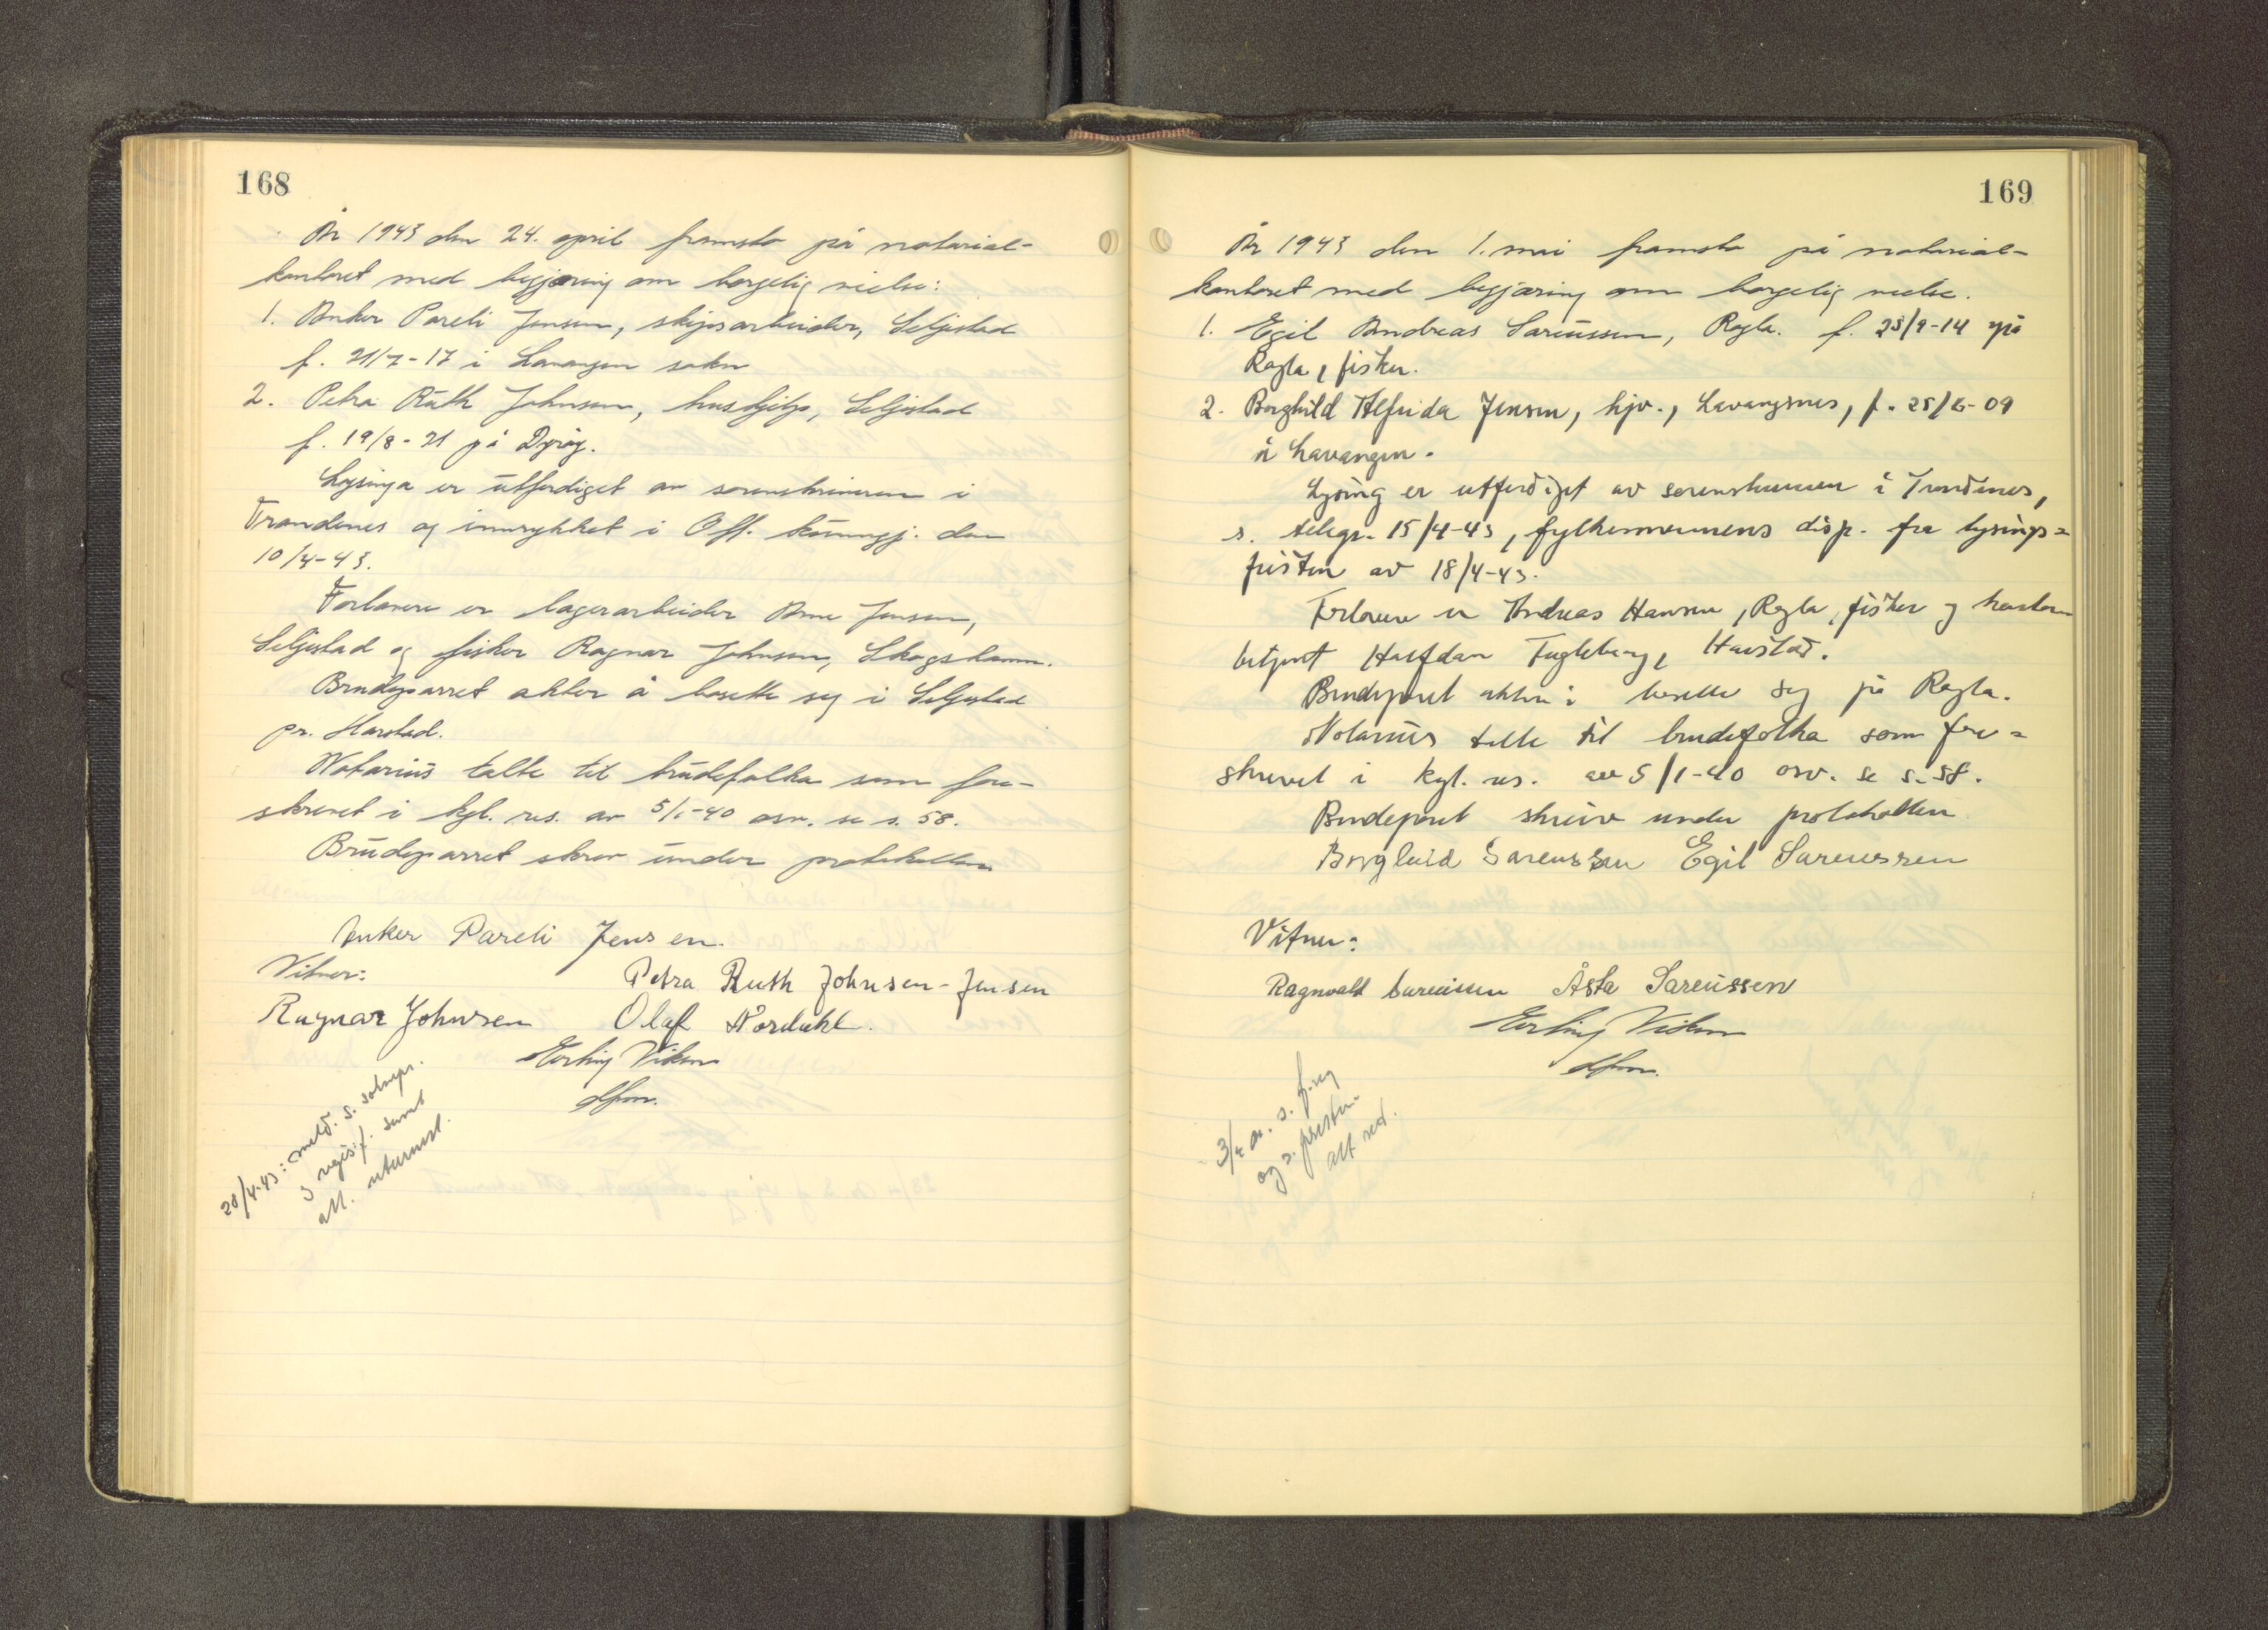 168
År 1943 den 24. april framsto på notarial-
kontoret med begjæring om borgelig vielse:
1. Anker Pareli Jensen, skipsarbeider, Seljestad
f. 21/7-17 i Lavangen sokn
2. Petra Ruth Johnsen, hushjelp, Seljestad
f. 19/8-21 på Dyrøy.
Lysinga er utferdiget av sorenskriveren i
Trondenes og innrykket i Off. kunngj. den
10/4-43.
Forlovere er lagerarbeider Arne Jensen,
Seljestad og fisker Ragnar Johnsen, Skogshamn.
Brudeparret akter å bosette seg i Seljestad
pr. Harstad.
Notarius talte til brudefolka som fore-
skrevet i kgl. res. av 5/1-40 osv. se s. 58.
Brudeparret skrev under protokollen
Anker Pareli Jensen.
Vitner:
Petra Ruth Johnsen-Jensen
Ragnar Johnsen Olaf
Erling
dfm.
28/4-43: meld. s. soknepr.
3 regis.f. samt
att. utturmst.
169
År 1943 den 1. mai framsto på notarial-
kontoret med begjæring om borgelig vielse.
1. Egil Andreas Sareussen, Rogla. f. 23/9-14 på
Rogla, fisker.
2. Borghild Alfrida Jensen, hjv., Lavangsnes, f. 25/6-09
i Lavangen.
Lysing er utferdiget av sorenskriveren i Trondenes,
s. telegr. 15/4-43, fylkesmannens disp. fra lysings=
fristen av 18/4-43.
Forlovere er Andreas Hansen, Rogla, fisker og
betjent Halfdan Fugleberg, Harstad.
Brudeparet akter å bosette seg på Rogla.
Notarius talte til brudefolka som fore=
skrevet i kgl. res. av 5/1-40 osv. se s. 58.
Brudeparet skreiv under protokollen
Borghild Sareussen Egil Sareussen
Vitner:
Ragnvald Sareussen Åsta Sareussen
Erling
dfm.
og s. presten